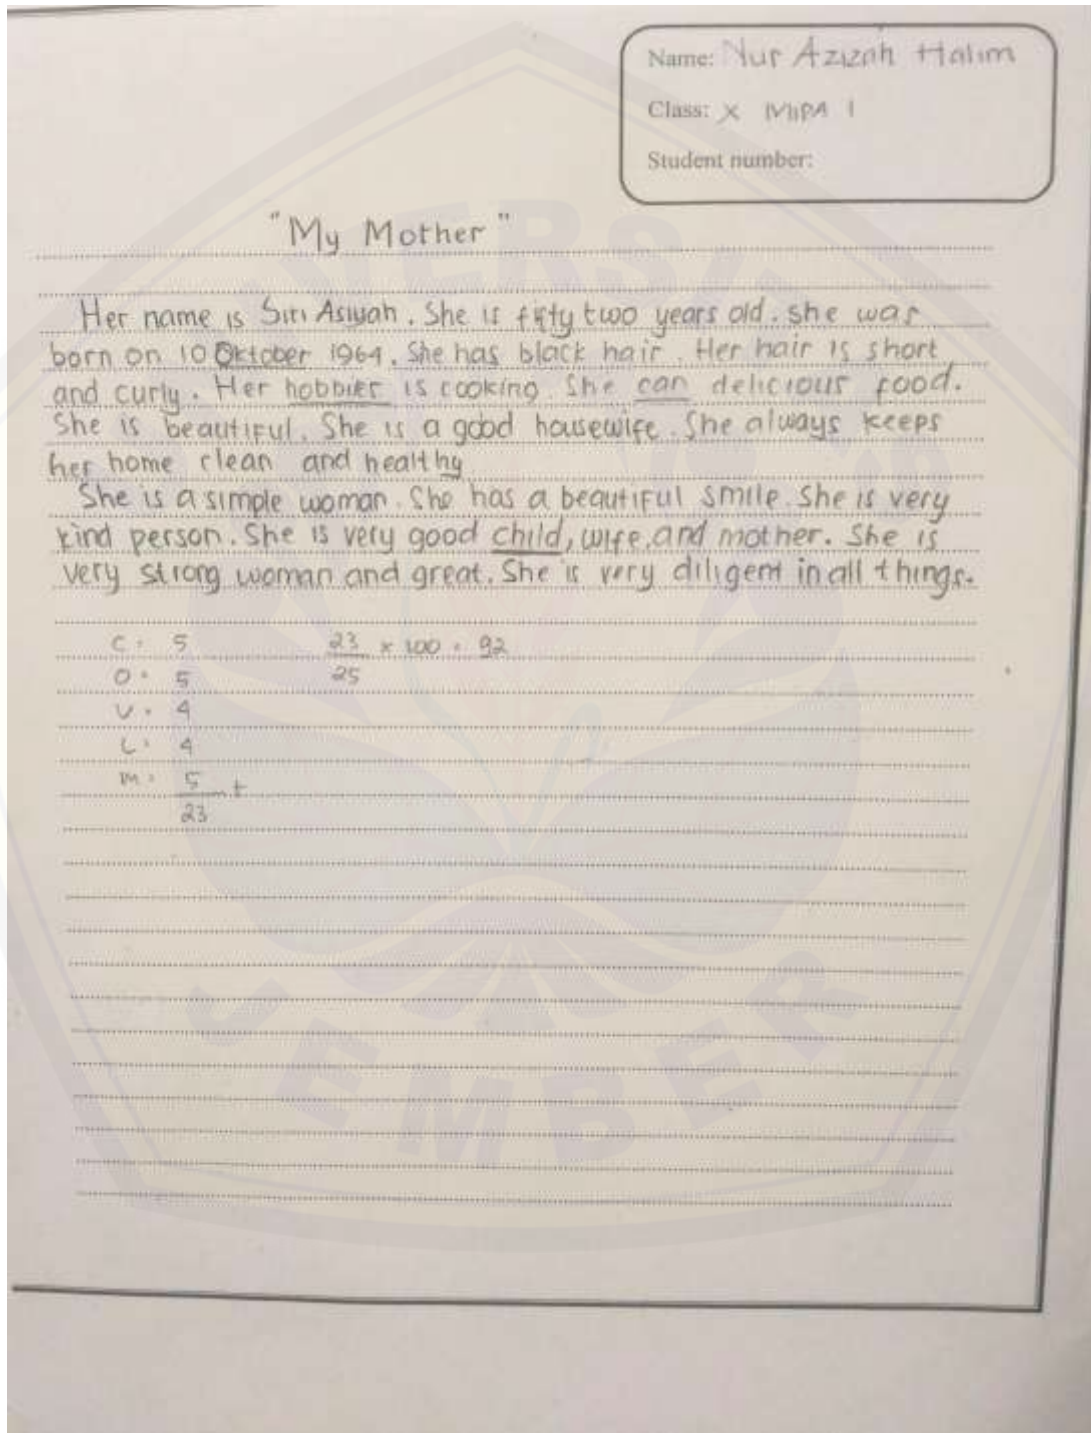 Name: Nur Azizah Halim
Class: X MIPA 1
Student number:
"My Mother"
Her name is Siti Asiyah. She is fifty two years old. She was
born on 10 Oktober 1964. She has black hair. Her hair is short
and curly. Her hobbies is cooking. She can delicious food.
She is beautiful. She is a good housewife. She always keeps
her home clean and healthy
She is a simple woman. She has a beautiful smile. She is very
kind person. She is very good child, wife, and mother. She is
very strong woman and great. She is very diligent in all things.
C = 5
O = 5
V = 4
L = 4
M = 5 +
23
23 x 100 = 92
25
UNIVERSITAS
JEMBER